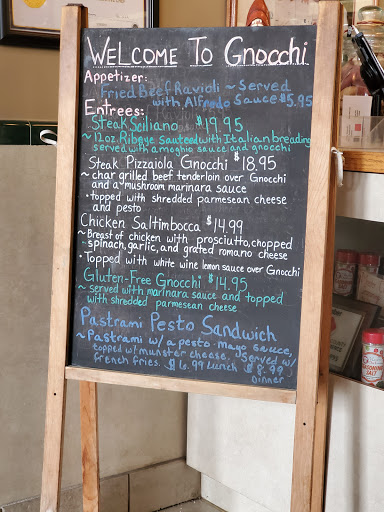 WELCOME TO Gnocchi
Appetizer:
Fried Beef Ravioli ~ Served
with Alfredo Sauce $5.95
Entrees:
Steak Siiliano $19.95
~ 12oz Ribeye sauteed with Italian breading
served with amoghio sauce and gnocchi
Steak Pizzaiola Gnocchi $18.95
~ char grilled beef tenderloin over Gnocchi
and a mushroom marinara sauce
• topped with shredded parmesean cheese
and pesto
Chicken Saltimbocca $14.99
~ Breast of chicken with prosciutto, chopped
spinach, garlic, and grated romano cheese
• Topped with white wine lemon sauce over Gnocchi
Gluten-Free Gnocchi $14.95
~ served with marinara sauce and topped
with shredded parmesean cheese
Pastrami Pesto Sandwich
~ Pastrami w/ a pesto-mayo sauce,
topped w/ munster cheese. Served w/
french fries. $6.99 Lunch $8.99
Dinner